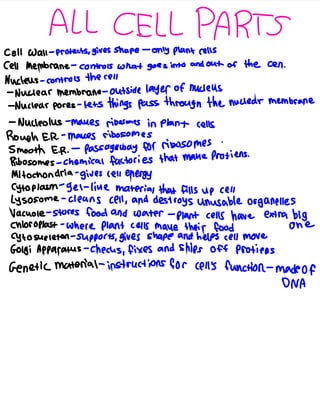 ALL CELL PARTS
Cell Wall-protects, gives shape-only plant cells
Cell Membrane-controls what goes into and out of the cell.
Nucleus-controls the cell
-Nuclear membrane-outside layer of nucleus
-Nuclear pores-lets things pass through the nuclear membrane
-Nucleolus-makes ribosomes in plant cells
Rough E.R-makes ribosomes
Smooth E.R.-passageway for ribosomes.
Ribosomes-chemical factories that make Protiens.
Mitochondria-gives cell energy
Cytoplasm-gel-like material that fills up cell
Lysosome-cleans cell, and destroys unusable organelles
Vacuole-stores food and water-plant cells have extra big one
Chloroplast-where plant cells make their food
Cytoskeleton-supports, gives shape and helps cell move
Golgi Apparatus-checks, fixes and ships off Protiens
Genetic material-instructions for cell's function-made of
DNA